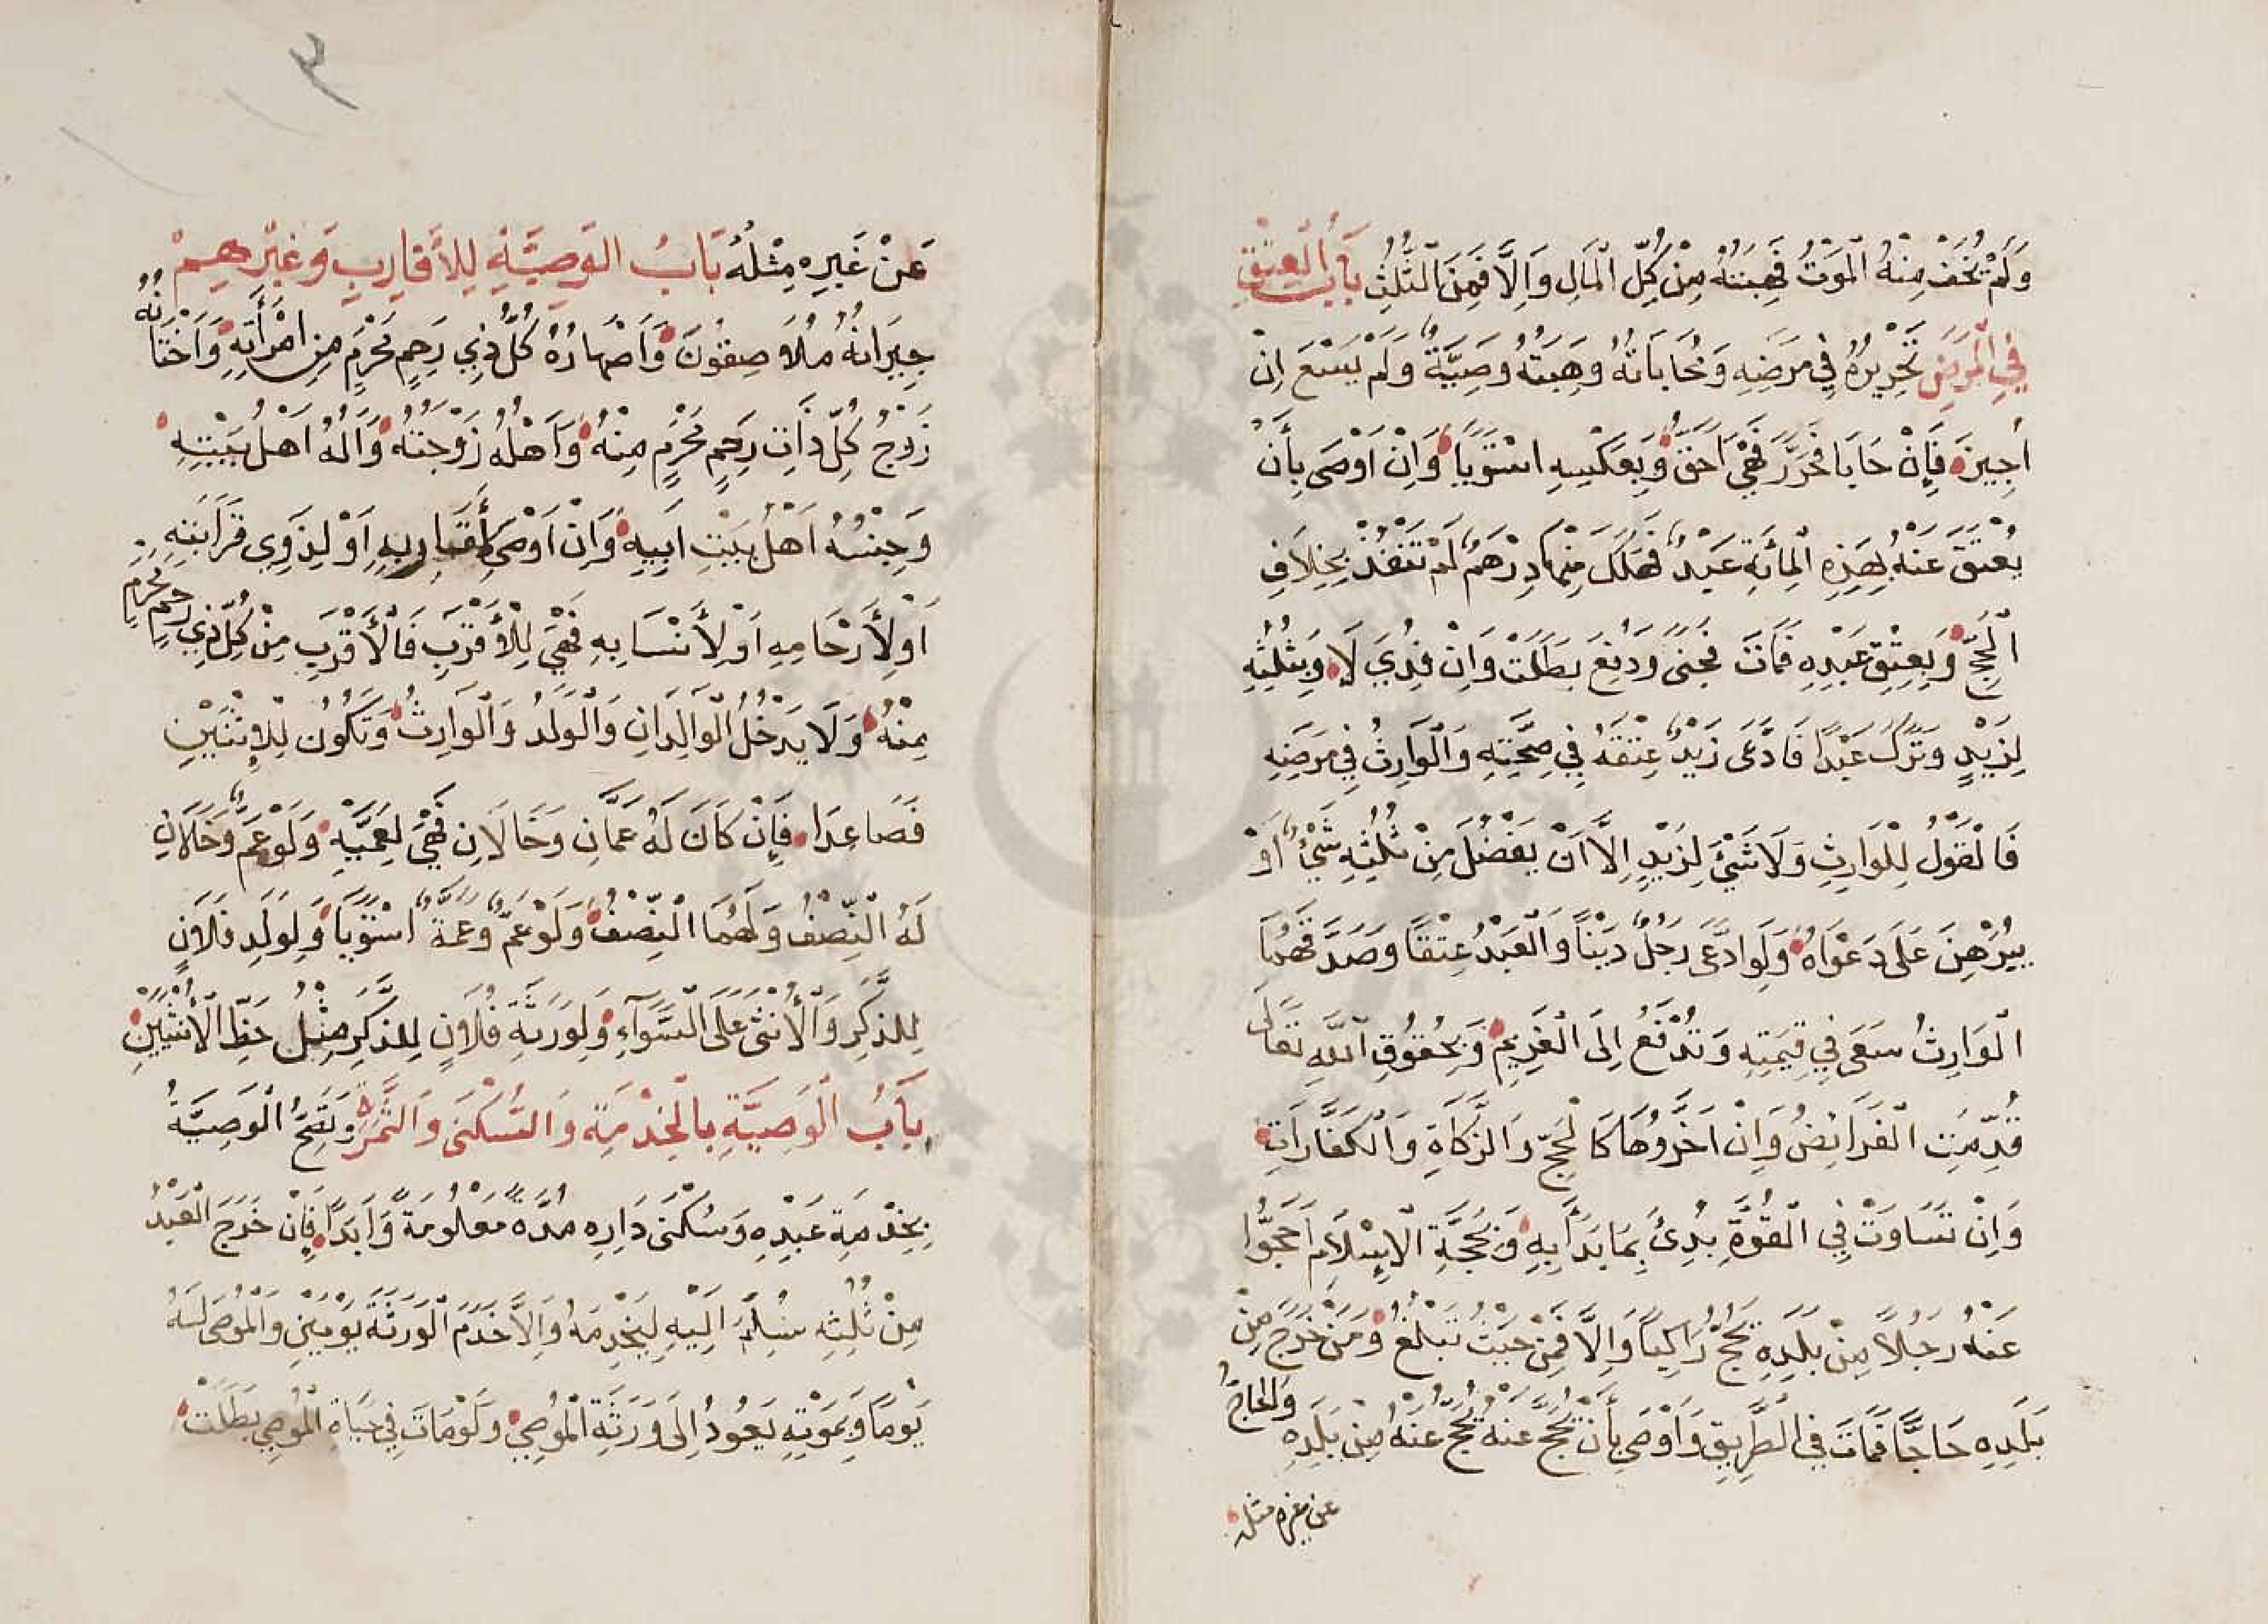 وَلَمْ يُخَفْ مِنْهُ الْمَوْتُ فَهِبَتُهُ مِنْ كُلِّ الْمَالِ وَاِلَّا فَمِنَ الثُّلُثِ بَابُ الْعِتْقِ
فِي الْمَرَضِ تَحْرِيرُهُ فِي مَرَضِهِ وَمُحَابَاتُهُ وَهِبَتُهُ وَصِيَّةٌ وَلَمْ يَسْعَ اِنْ
اُجِيزَ فَاِنْ حَابَا فَحَرَّرَ فَهِيَ اَحَقُّ وَبِعَكْسِهِ اسْتَوَيَا وَاِنْ اَوْصَى بِأَنْ
يُعْتَقَ عَنْهُ بِهَذِهِ الْمِائَةِ عَبْدٌ فَهَلَكَ مِنْهَا دِرْهَمٌ لَمْ تَنْفُذْ بِخِلَافِ
الْحَجِّ وَبِعِتْقِ عَبْدِهِ فَمَاتَ فَجَنَى وَدُفِعَ بَطَلَتْ وَاِنْ فُدِيَ لَا وَبِثُلُثِهِ
لِزَيْدٍ وَتَرَكَ عَبْدًا فَادَّعَى زَيْدٌ عِتْقَهُ فِي صِحَّتِهِ وَالْوَارِثُ فِي مَرَضِهِ
فَالْقَوْلُ لِلْوَارِثِ وَلَا شَيْءَ لِزَيْدٍ اِلَّا اَنْ يَفْضُلَ مِنْ ثُلُثِهِ شَيْءٌ اَوْ
يُبَرْهِنَ عَلَى دَعْوَاهُ وَلَوِ ادَّعَى رَجُلٌ دَيْنًا وَالْعَبْدُ عِتْقًا وَصَدَّقَهُمَا
الْوَارِثُ سَعَى فِي قِيمَتِهِ وَتُدْفَعُ اِلَى الْغَرِيمِ وَبِحُقُوقِ اللّٰهِ تَعَالَى
قُدِّمَتِ الْفَرَائِضُ وَاِنْ اَخَّرَهَا كَالْحَجِّ وَالزَّكَاةِ وَالْكَفَّارَاتِ
وَاِنْ تَسَاوَتْ فِي الْقُوَّةِ بُدِئَ بِمَا بَدَأَ بِهِ وَبِحَجَّةِ الْاِسْلَامِ اَحَجُّوا
عَنْهُ رَجُلًا مِنْ بَلَدِهِ يَحُجُّ رَاكِبًا وَاِلَّا فَمِنْ حَيْثُ تَبْلُغُ وَمَنْ خَرَجَ مِنْ
بَلَدِهِ حَاجًّا فَمَاتَ فِي الطَّرِيقِ وَاَوْصَى بِأَنْ يُحَجَّ عَنْهُ يُحَجُّ عَنْهُ مِنْ بَلَدِهِ وَالْحَاجُّ
عن غيره مثله
عَنْ غَيْرِهِ مِثْلُهُ بَابُ الْوَصِيَّةِ لِلْأَقَارِبِ وَغَيْرِهِمْ
جِيرَانُهُ مُلَاصِقُونَ وَاَصْهَارُهُ كُلُّ ذِي رَحِمٍ مَحْرَمٍ مِنِ امْرَأَتِهِ وَاَخْتَانُهُ
زَوْجُ كُلِّ ذَاتِ رَحِمٍ مَحْرَمٍ مِنْهُ وَاَهْلُهُ زَوْجَتُهُ وَاٰلُهُ اَهْلُ بَيْتِهِ
وَجِنْسُهُ اَهْلُ بَيْتِ اَبِيهِ وَاِنْ اَوْصَى لِأَقَارِبِهِ اَوْ لِذَوِي قَرَابَتِهِ
اَوْ لِأَرْحَامِهِ اَوْ لِأَنْسَابِهِ فَهِيَ لِلْأَقْرَبِ فَالْأَقْرَبِ مِنْ كُلِّ ذِي رَحِمٍ مَحْرَمٍ
مِنْهُ وَلَا يَدْخُلُ الْوَالِدَانِ وَالْوَلَدُ وَالْوَارِثُ وَتَكُونُ لِلِاثْنَيْنِ
فَصَاعِدًا فَاِنْ كَانَ لَهُ عَمَّانِ وَخَالَانِ فَهِيَ لِعَمَّيْهِ وَلَوْ عَمٌّ وَخَالَانِ
لَهُ النِّصْفُ وَلَهُمَا النِّصْفُ وَلَوْ عَمٌّ وَعَمَّةٌ اسْتَوَيَا وَلِوَلَدِ فُلَانٍ
لِلذَّكَرِ وَالْأُنْثَى عَلَى السَّوَآءِ وَلِوَرَثَةِ فُلَانٍ لِلذَّكَرِ مِثْلُ حَظِّ الْاُنْثَيَيْنِ
بَابُ الْوَصِيَّةِ بِالْخِدْمَةِ وَالسُّكْنَى وَالثَّمَرَةِ وَتَصِحُّ الْوَصِيَّةُ
بِخِدْمَةِ عَبْدِهِ وَسُكْنَى دَارِهِ مُدَّةً مَعْلُومَةً وَاَبَدًا فَاِنْ خَرَجَ الْعَبْدُ
مِنْ ثُلُثِهِ سُلِّمَ اِلَيْهِ لِيَخْدِمَهُ وَاِلَّا خَدَمَ الْوَرَثَةَ يَوْمَيْنِ وَالْمُوصَى لَهُ
يَوْمًا وَبِمَوْتِهِ يَعُودُ اِلَى وَرَثَةِ الْمُوصِي وَلَوْ مَاتَ فِي حَيَاةِ الْمُوصِي بَطَلَتْ